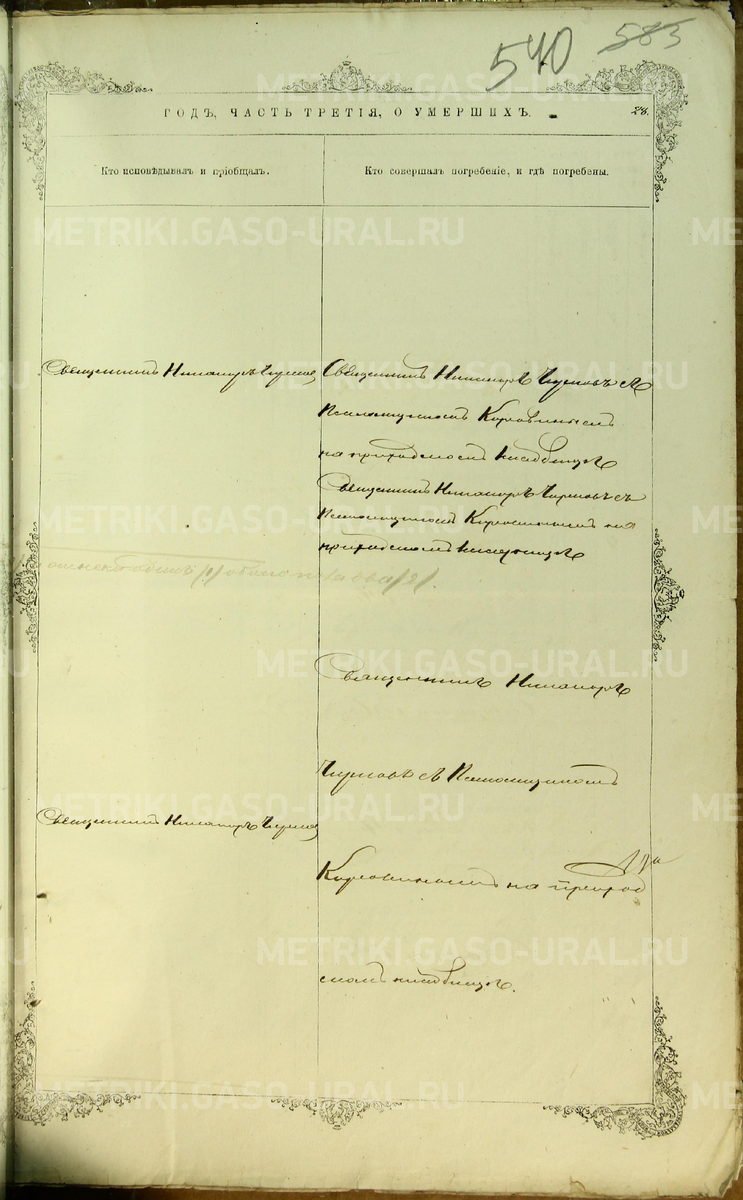 540 585
ГОДЪ, ЧАСТЬ ТРЕТІЯ, О УМЕРШИХЪ. 28.
Кто исповѣдывалъ и пріобщалъ.
Кто совершалъ погребеніе, и гдѣ погребены.
METRIKI.GASO-URAL.RU
Священникъ Никаноръ
Священникъ Никаноръ Чирковъ съ
Псаломщикомъ Корловинымъ
на приходскомъ кладбищѣ
Священникъ Никаноръ Чирковъ съ
Псаломщикомъ Корловинымъ на
приходскомъ кладбищѣ
Священникъ Никаноръ
Чирковъ съ Псаломщикомъ
Священникъ Никаноръ
Корловинымъ на приход
скомъ кладбищѣ.